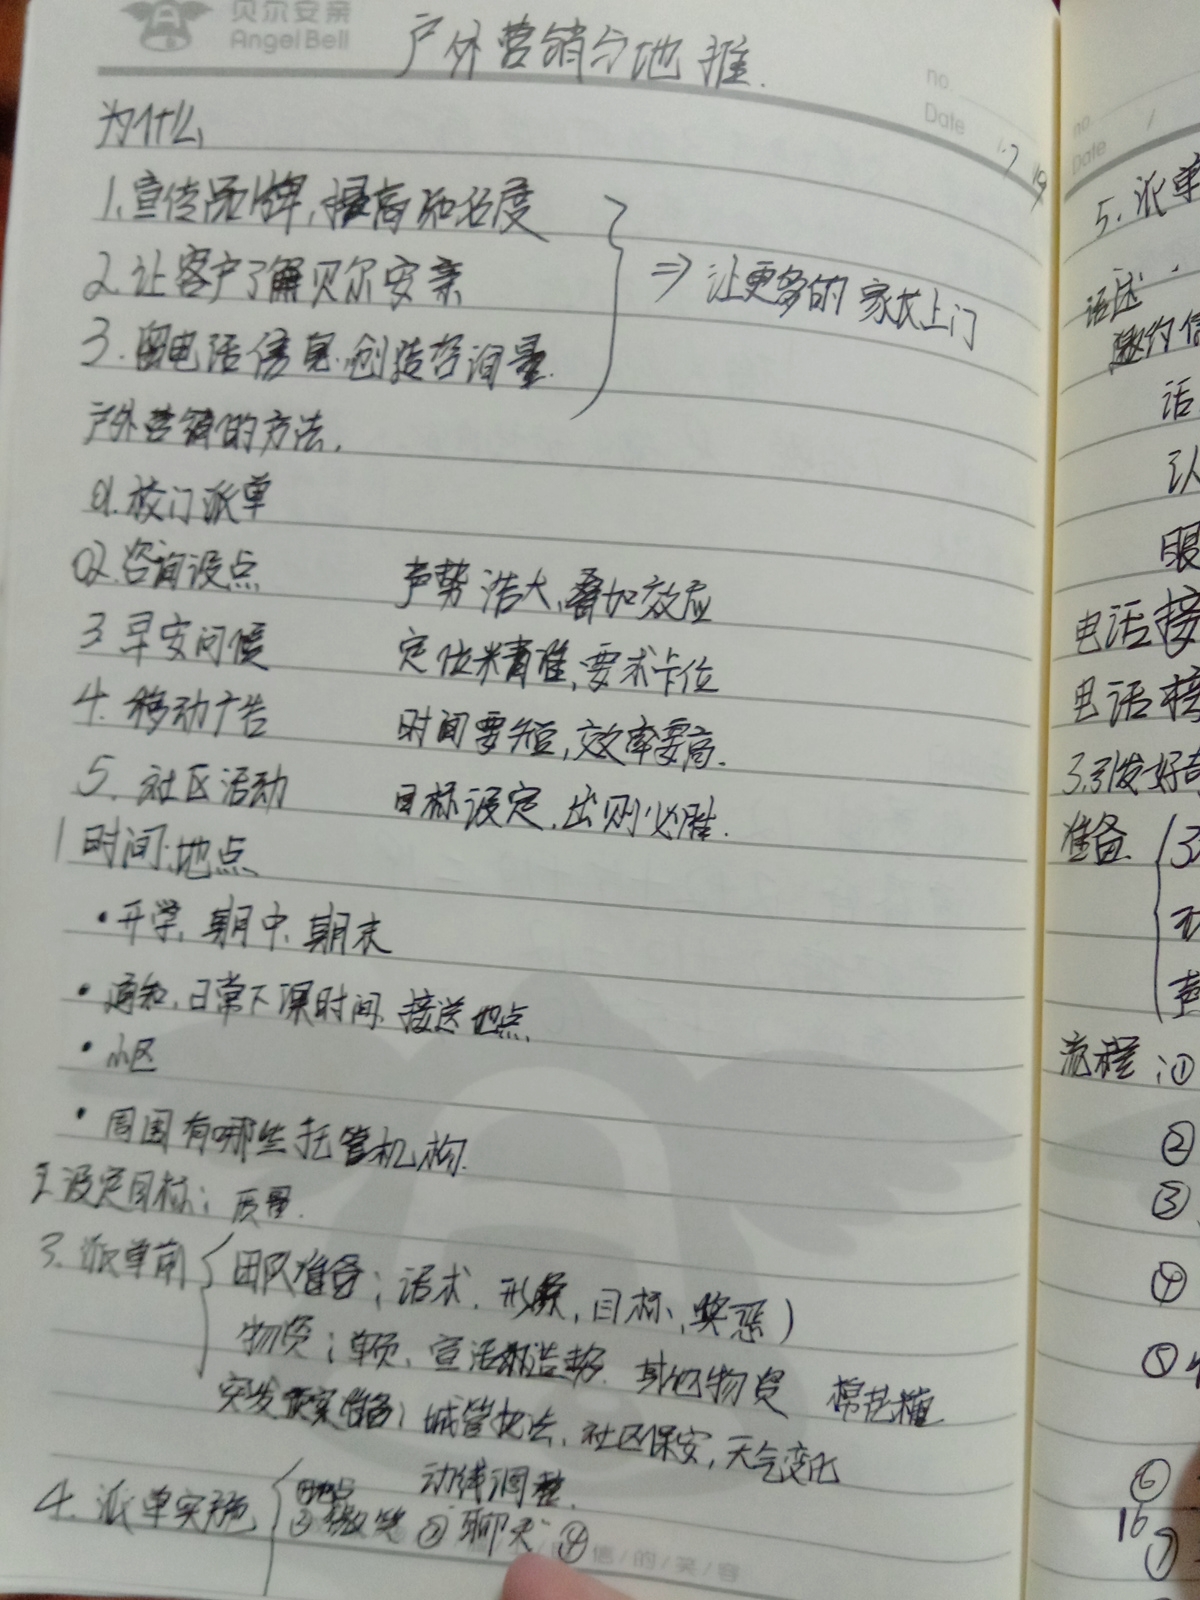 贝尔安亲
AngelBell
户外营销与地推.
no.
Date 1.7
为什么
1.宣传品牌,提高知名度
2.让客户了解贝尔安亲
3.留电话信息.创造咨询量.
⇒ 让更多的家长上门
户外营销的方法.
1.校门派单
2.咨询设点 声势浩大,叠加效应
3 早安问候 定位精准,要求卡位
4.移动广告 时间要短,效率要高.
5.社区活动 目标设定,出则必胜.
1 时间.地点
•开学,期中,期末
•通知,日常下课时间.接送地点.
•小区
•周围有哪些托管机构.
2.设定目标: 质量.
3.派单前 团队准备:话术.形象,目标,奖惩)
物资:单页,宣传造势.其他物资 棉花糖
突发预案准备:城管执法,社区保安,天气变化
4.派单实施 ①地点 动线调整.
②微笑 ③聊天 ④
信/的/笑/容
no.
Date
5.派单
话述
邀约信
话
认
眼
电话接
电话接
3.引发好奇
准备
流程:①
②
③
④
⑤
⑥
16
⑦